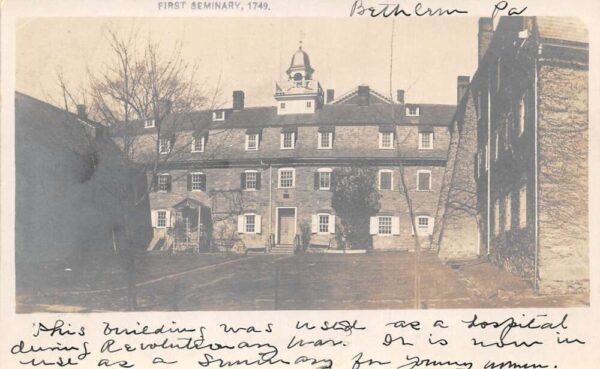 FIRST SEMINARY, 1749.
Bethlem Pa
This building was used as a Hospital
during Revolutionary War. It is now in
use as a Seminary for young women.